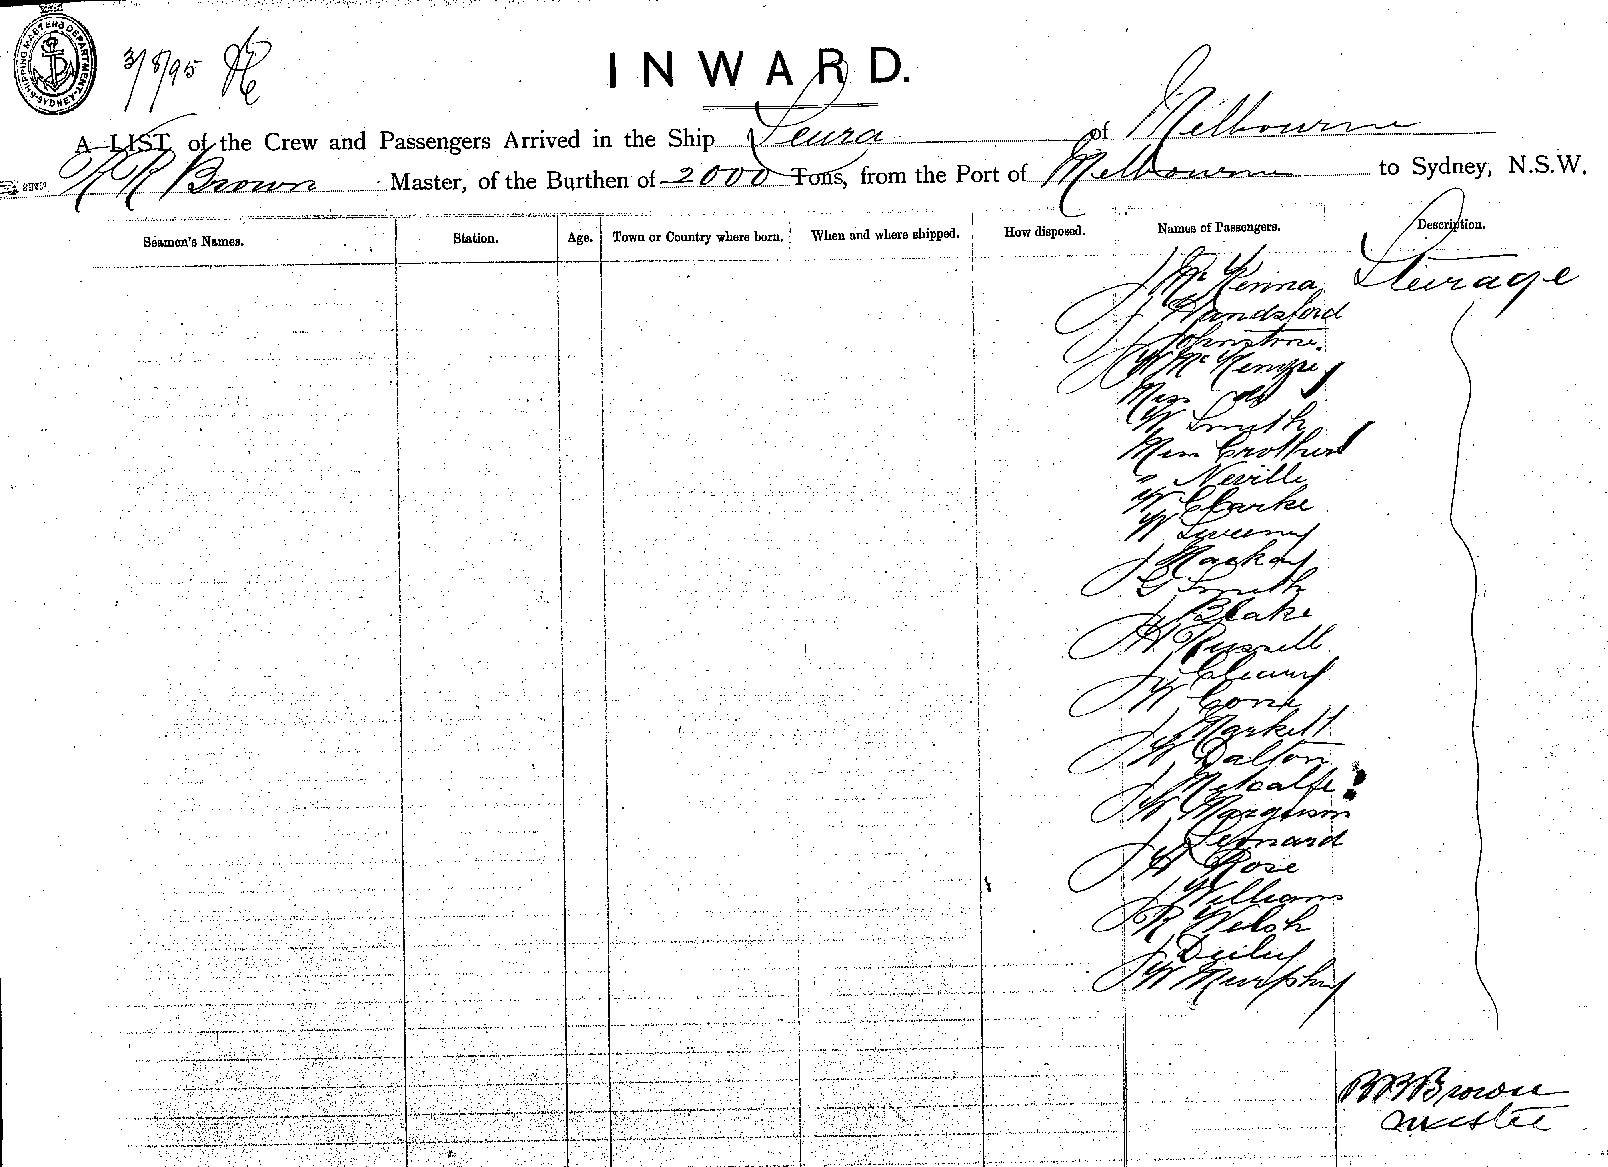 SHIPPING MASTERS DEPARTMENT SYDNEY
3/8/95
INWARD.
A LIST of the Crew and Passengers Arrived in the Ship Leura of Melbourne
Brown Master, of the Burthen of 2000 Tons, from the Port of Melbourne to Sydney, N.S.W.
Seamen's Names. Station. Age. Town or Country where born. When and where shipped. How disposed. Names of Passengers. Description.
J McKenna Steerage
J Handsford
J Johnstone
W McKenzie
Miss
W Smith
Miss Crothers
" Neville
W Clarke
W Sweeny
J Mackay
G Smith
J Blake
H Russell
J Cleary
W Gove
J Markett
W Dalton
J Metcalfe
W Margison
J Leonard
H Rose
J Williams
R Welsh
J Deiley
W Murphy
Brown
Master